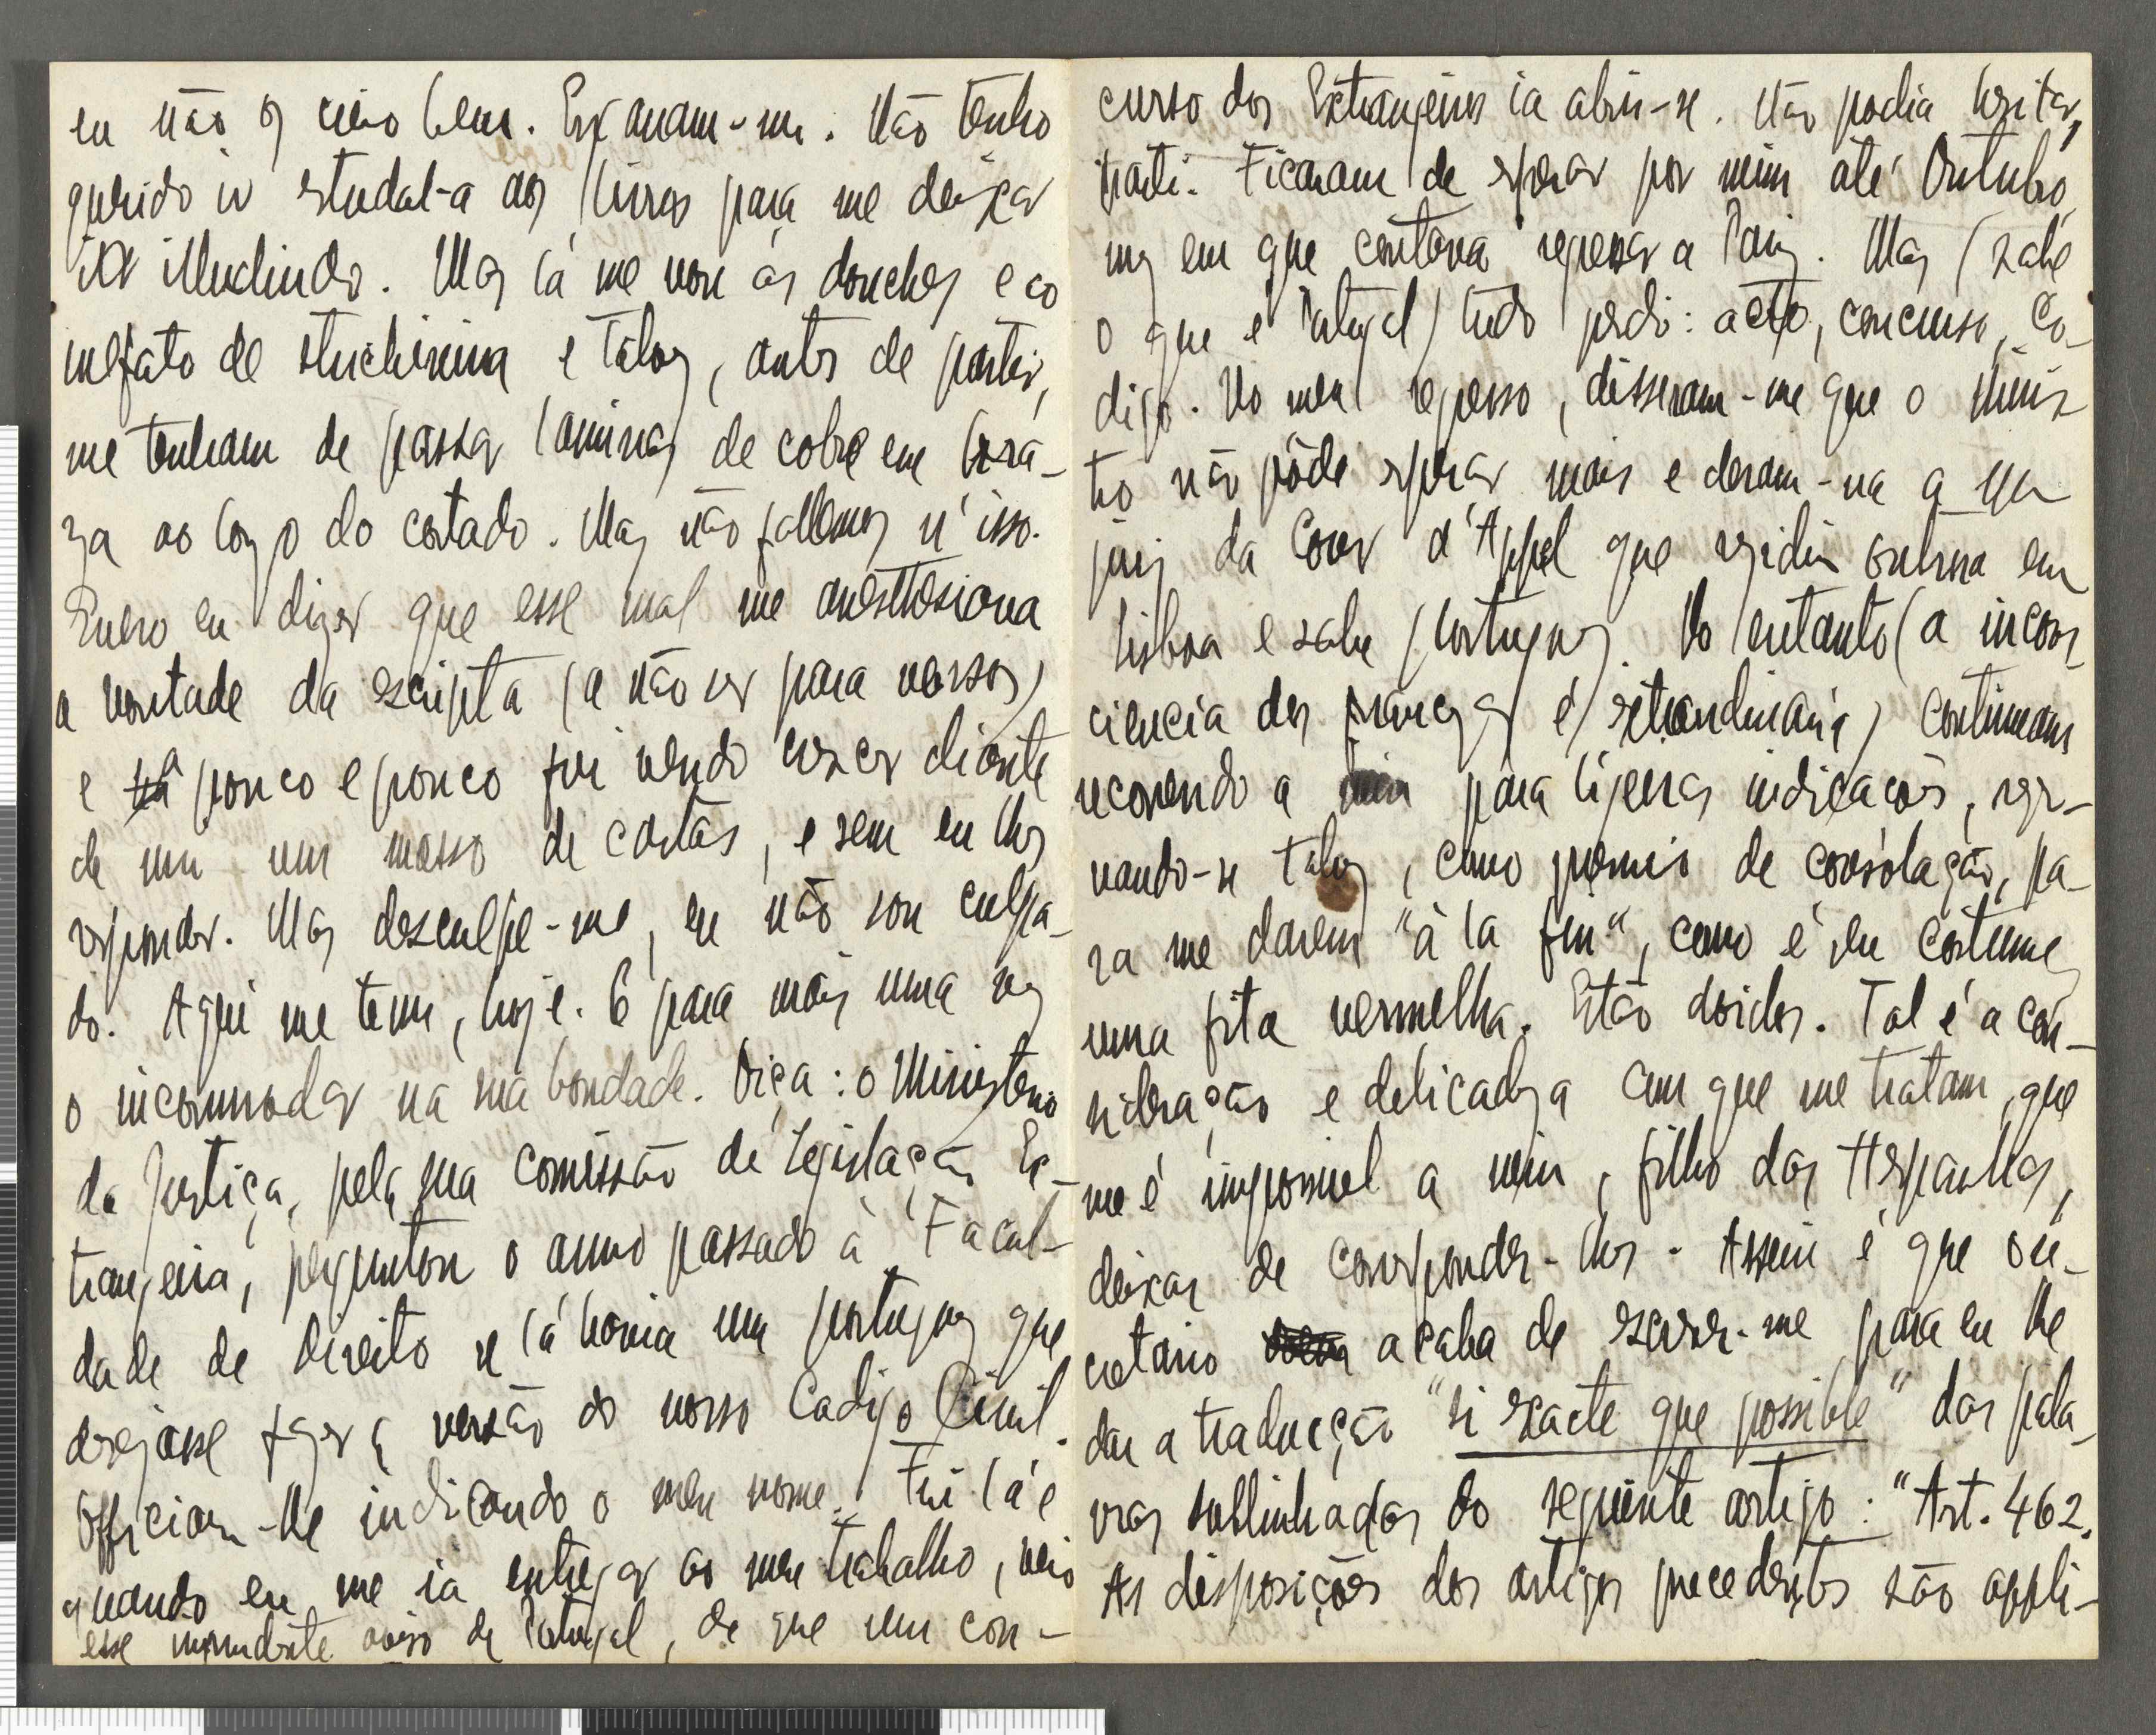 eu não os creio bem. Enganam-me. Não tenho
querido ir estudal-a aos livros para me deixar
ir illudindo. Mas lá me vou ás douches e ao
sulfato de stuchinina e talvez, antes de partir,
me tenham de passar laminas de cobre em bra-
za ao longo do costado. Mas não fallemos n'isso.
Quero eu dizer que esse mal me anesthesiava
a vontade da escripta (a não ser para versos)
e a pouco e pouco fui vendo crescer diante
de mim um masso de cartas, e sem eu lhes
responder. Mas desculpe-me, eu não sou culpa-
do. Aqui me tem, hoje. E para mais uma vez
o incommodar na sua bondade. Oiça: o Ministerio
da Justiça, pela sua comissão de Legislação Ex-
trangeira, perguntou o anno passado á Facul-
dade de Direito se lá havia um portuguez que
desejasse fazer a versão do nosso Codigo Civil.
Officiou-lhe indicando o meu nome. Fui lá e
quando eu me ia entregar ao meu trabalho, veio
esse imprudente aviso de Portugal, de que um con-
curso dos Extrangeiros ia abrir-se. Não podia hesitar,
parti. Ficaram de esperar por mim até Outubro,
mez em que contava regressar a Pariz. Mas (sabe
o que é Portugal) tudo perdi: acto, concurso, Co-
digo. No meu regresso, disseram-me que o minis-
tro não pôde esperar mais e deram-na a um
juiz da Cour d'Appel que residiu outrora em
Lisboa e sabe portuguez. No entanto (a incons-
ciencia dos francezes é extraordinaria) continuam
recorrendo a mim para ligeiras indicações, reser-
vando-se talvez, como premio de consolação, pa-
ra me darem "à la fin", como é seu costume,
uma fita vermelha. Estão doidos. Tal é a con-
sideração e delicadeza com que me tratam, que
me é impossivel a mim, filho das Hespanhas,
deixar de corresponder-lhes. Assim é que o se-
cretario acaba de escrever-me para eu lhe
dar a traducção "si exacte que possible" das pala-
vras sublinhadas do seguinte artigo: "Art. 462.
As disposições dos artigos precedentes são appli-